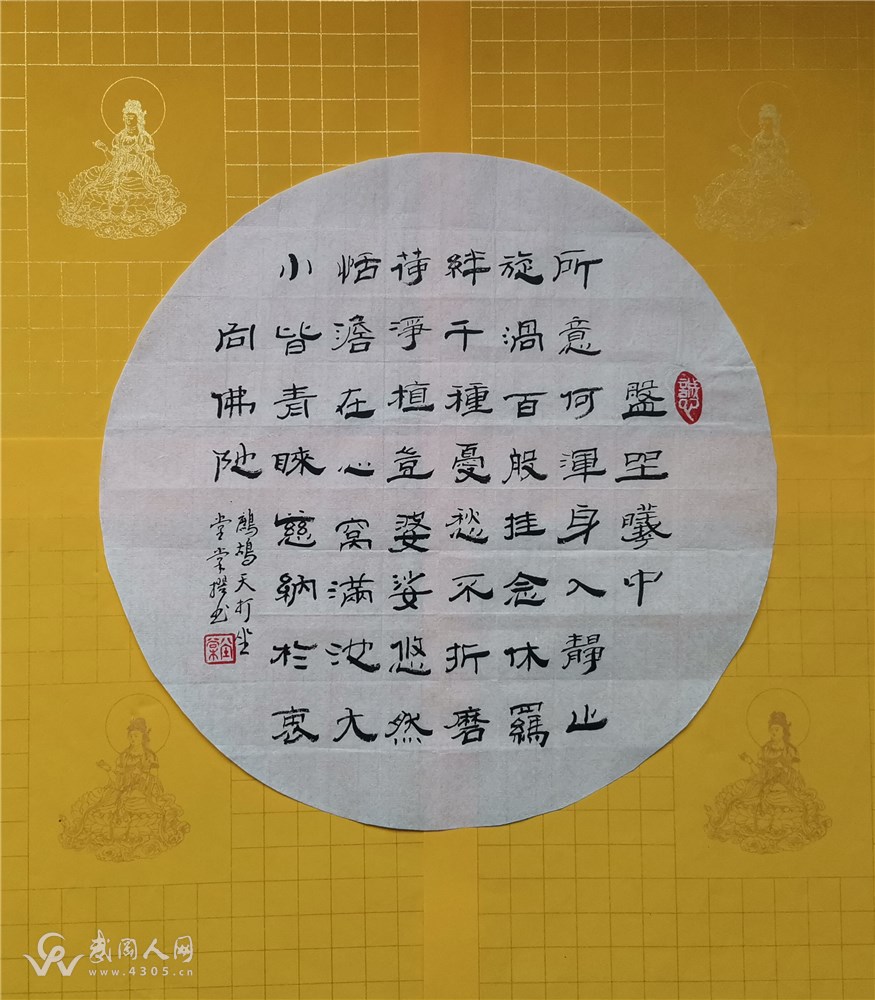 盤坐曦中
所意何渾身入靜止
旋渦百般挂念休羈
絆千種憂愁不折磨
荷淨植婆娑悠然
恬澹在心窩滿池大
小皆青睞慈納於衷
向佛陀
鷓鴣天打坐
堂棠撰书
岗人网
www.4305.cn